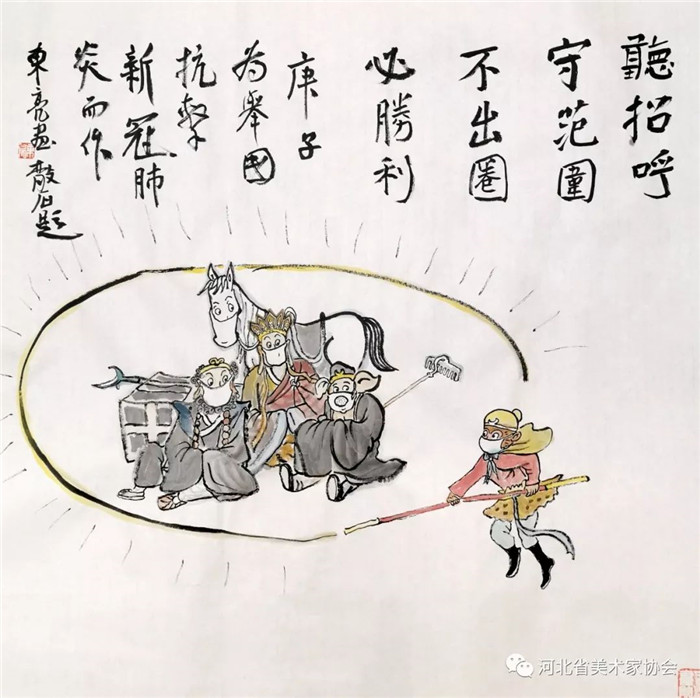 聽招呼
守范圍
不出圈
必勝利
庚子
为舉國
抗擊
新冠肺
炎而作
東亮畫
石題
河北省美术家协会